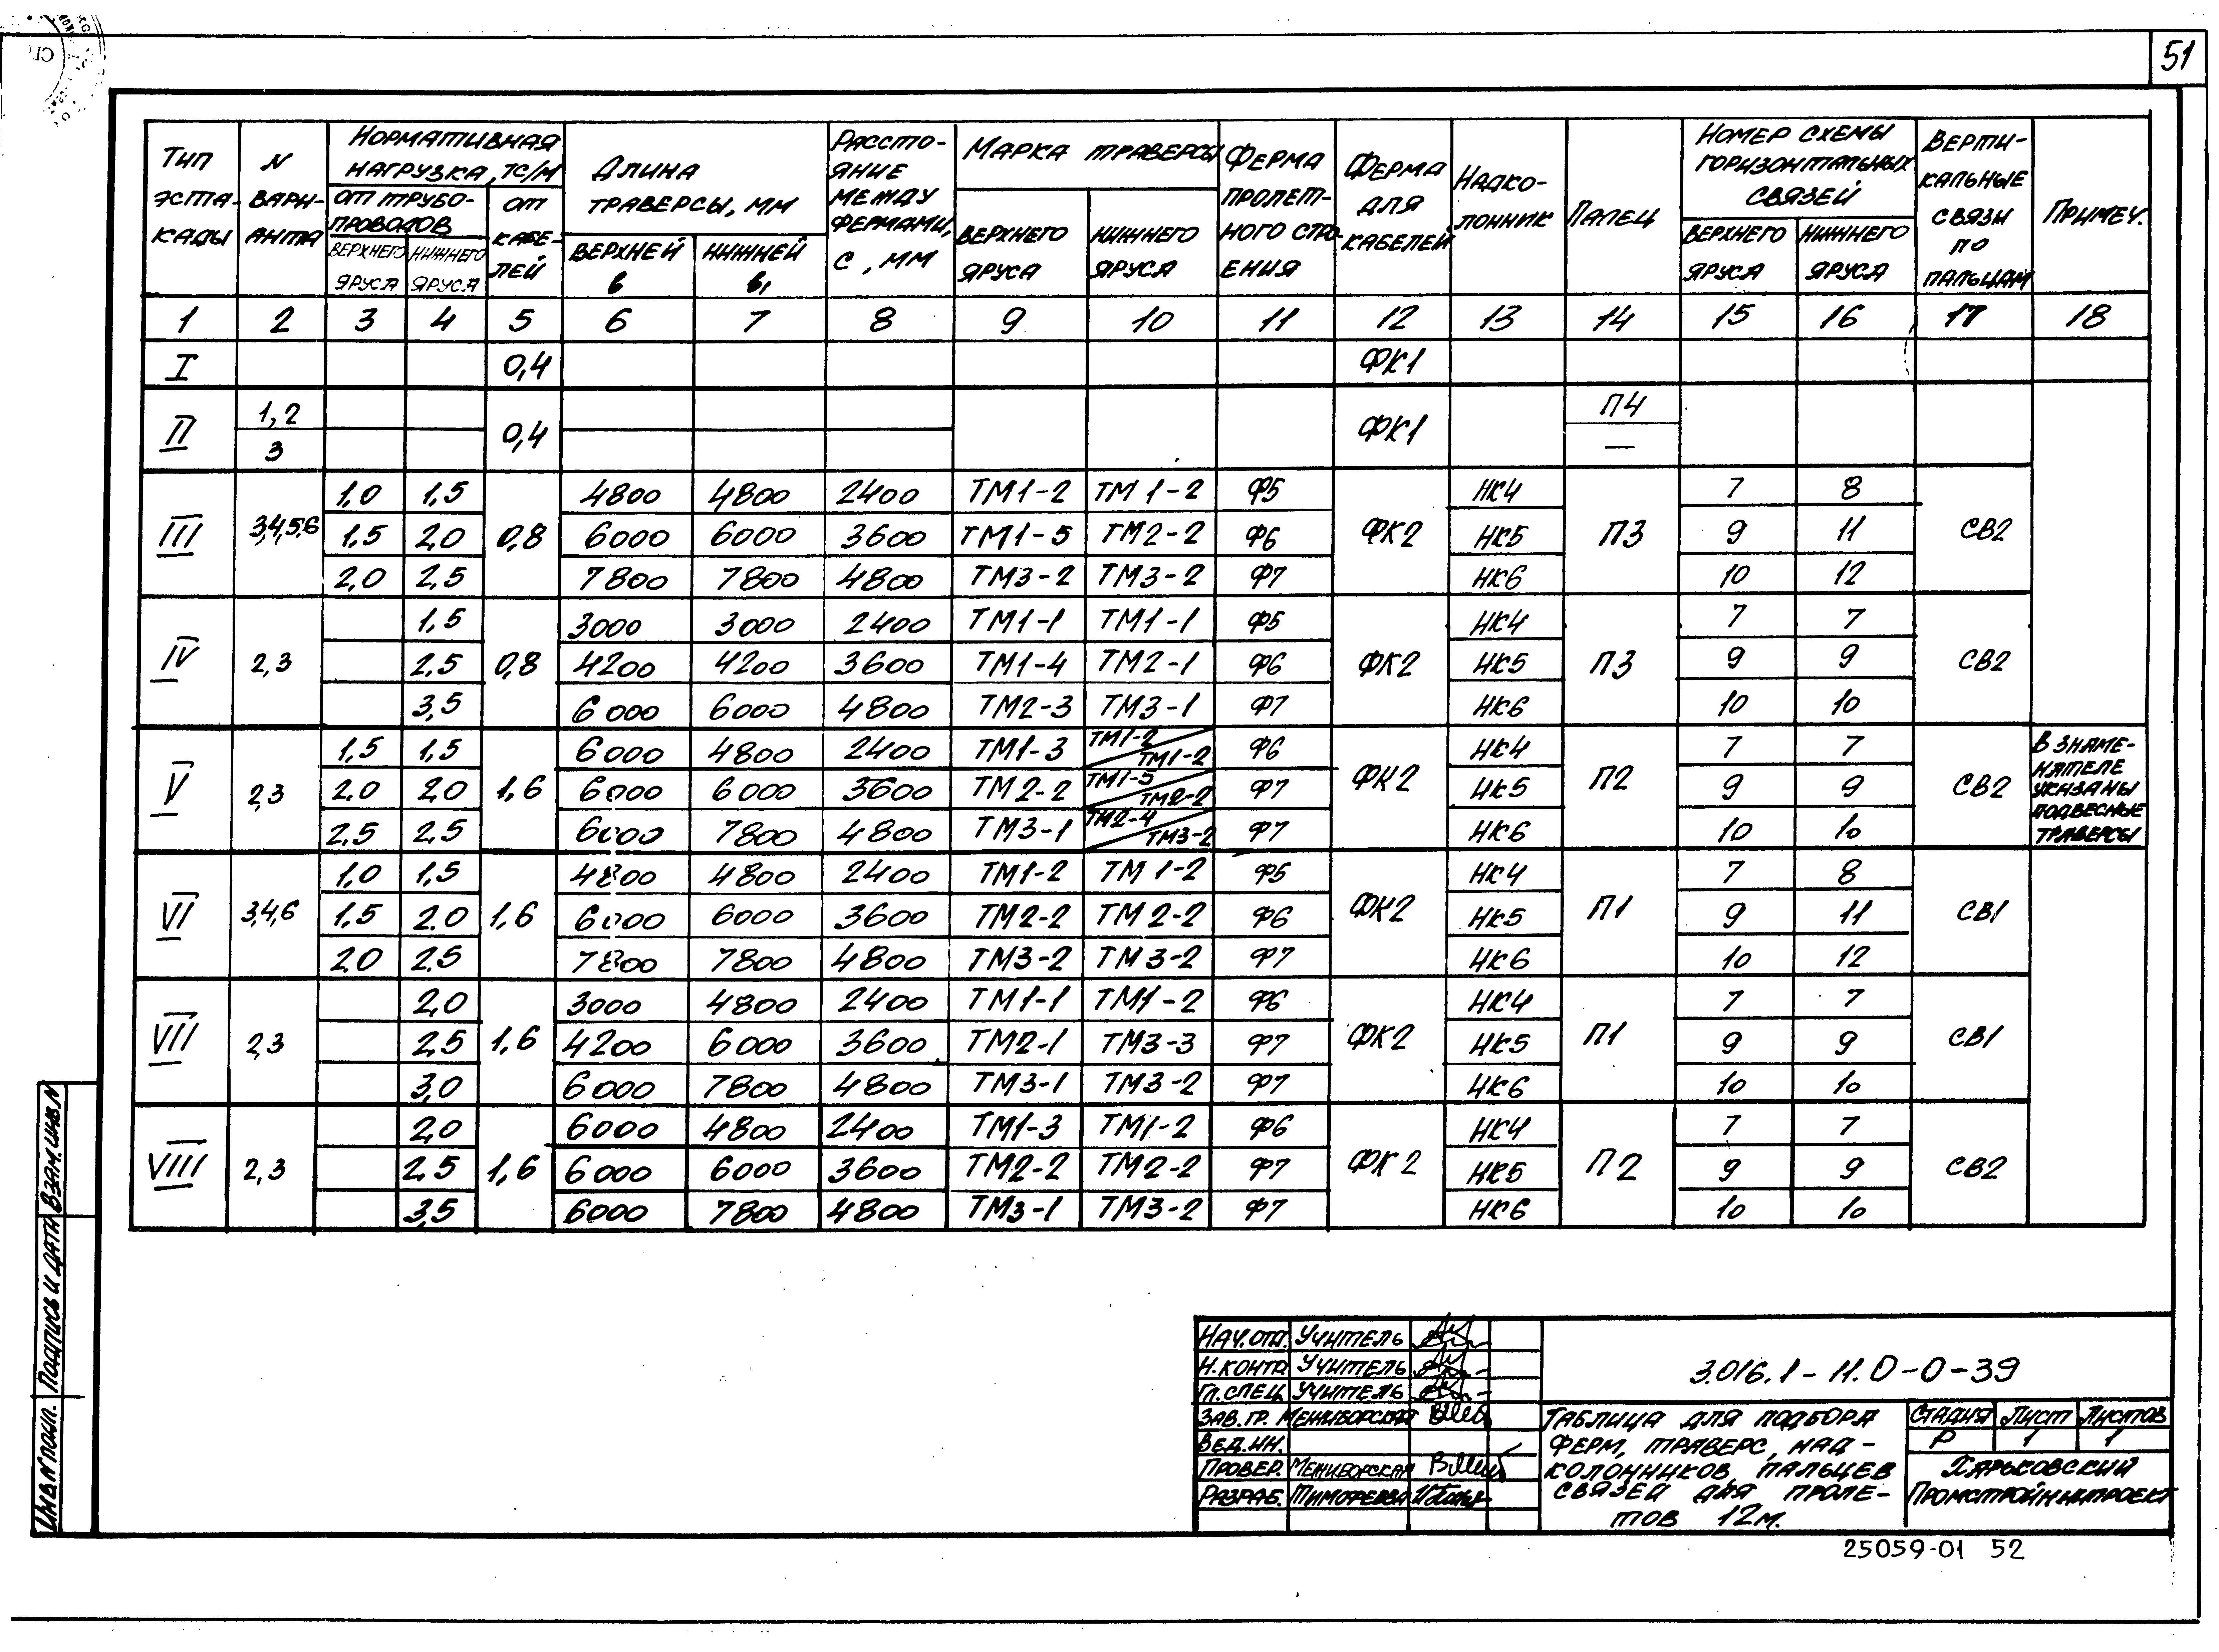 51
ТИП ЭСТАКАДЫ
N ВАРИАНТА
НОРМАТИВНАЯ НАГРУЗКА, ТС/М
ОТ ТРУБОПРОВОДОВ
ВЕРХНЕГО ЯРУСА
НИЖНЕГО ЯРУСА
ОТ КАБЕЛЕЙ
ДЛИНА ТРАВЕРСЫ, ММ
ВЕРХНЕЙ в
НИЖНЕЙ в₁
РАССТОЯНИЕ МЕЖДУ ФЕРМАМИ, С, ММ
МАРКА ТРАВЕРСЫ
ВЕРХНЕГО ЯРУСА
НИЖНЕГО ЯРУСА
ФЕРМА ПРОЛЕТНОГО СТРОЕНИЯ
ФЕРМА ДЛЯ КАБЕЛЕЙ
НАДКОЛОННИК
ПАЛЕЦ
НОМЕР СХЕМЫ ГОРИЗОНТАЛЬНЫХ СВЯЗЕЙ
ВЕРХНЕГО ЯРУСА
НИЖНЕГО ЯРУСА
ВЕРТИКАЛЬНЫЕ СВЯЗИ ПО ПАЛЬЦАМ
ПРИМЕЧ.
1 2 3 4 5 6 7 8 9 10 11 12 13 14 15 16 17 18
I 0,4 ФК1
II 1,2 0,4 ФК1 П4
3 —
1,0 1,5 4800 4800 2400 ТМ1-2 ТМ1-2 Ф5 НК4 7 8
III 3,4,5,6 1,5 2,0 0,8 6000 6000 3600 ТМ1-5 ТМ2-2 Ф6 ФК2 НК5 П3 9 11 СВ2
2,0 2,5 7800 7800 4800 ТМ3-2 ТМ3-2 Ф7 НК6 10 12
1,5 3000 3000 2400 ТМ1-1 ТМ1-1 Ф5 НК4 7 7
IV 2,3 2,5 0,8 4200 4200 3600 ТМ1-4 ТМ2-1 Ф6 ФК2 НК5 П3 9 9 СВ2
3,5 6000 6000 4800 ТМ2-3 ТМ3-1 Ф7 НК6 10 10
1,5 1,5 6000 4800 2400 ТМ1-3 ТМ1-2/ТМ1-2 Ф6 НК4 7 7
V 2,3 2,0 2,0 1,6 6000 6000 3600 ТМ2-2 ТМ1-5/ТМ2-2 Ф7 ФК2 НК5 П2 9 9 СВ2
2,5 2,5 6000 7800 4800 ТМ3-1 ТМ2-4/ТМ3-2 Ф7 НК6 10 10
В ЗНАМЕ-
НАТЕЛЕ
УКАЗАНЫ
ПОДВЕСНЫЕ
ТРАВЕРСЫ
1,0 1,5 4800 4800 2400 ТМ1-2 ТМ1-2 Ф5 НК4 7 8
VI 3,4,6 1,5 2,0 1,6 6000 6000 3600 ТМ2-2 ТМ2-2 Ф6 ФК2 НК5 П1 9 11 СВ1
2,0 2,5 7800 7800 4800 ТМ3-2 ТМ3-2 Ф7 НК6 10 12
2,0 3000 4800 2400 ТМ1-1 ТМ1-2 Ф6 НК4 7 7
VII 2,3 2,5 1,6 4200 6000 3600 ТМ2-1 ТМ3-3 Ф7 ФК2 НК5 П1 9 9 СВ1
3,0 6000 7800 4800 ТМ3-1 ТМ3-2 Ф7 НК6 10 10
2,0 6000 4800 2400 ТМ1-3 ТМ1-2 Ф6 НК4 7 7
VIII 2,3 2,5 1,6 6000 6000 3600 ТМ2-2 ТМ2-2 Ф7 ФК2 НК5 П2 9 9 СВ2
3,5 6000 7800 4800 ТМ3-1 ТМ3-2 Ф7 НК6 10 10
ИНВ.N ПОДЛ. ПОДПИСЬ И ДАТА ВЗАМ.ИНВ.N
НАЧ.ОТД. УЧИТЕЛЬ
Н.КОНТР УЧИТЕЛЬ
ГЛ.СПЕЦ. УЧИТЕЛЬ
ЗАВ.ГР. МЕЖИБОРСКАЯ
ВЕД.ИН.
ПРОВЕР. МЕЖИБОРСКАЯ
РАЗРАБ. ТИМОФЕЕВА
3.016.1-11.0-0-39
ТАБЛИЦА ДЛЯ ПОДБОРА
ФЕРМ, ТРАВЕРС, НАД-
КОЛОННИКОВ, ПАЛЬЦЕВ
СВЯЗЕЙ ДЛЯ ПРОЛЕ-
ТОВ 12М.
СТАДИЯ ЛИСТ ЛИСТОВ
Р 1 1
ХАРЬКОВСКИЙ
ПРОМСТРОЙНИИПРОЕКТ
25059-01 52